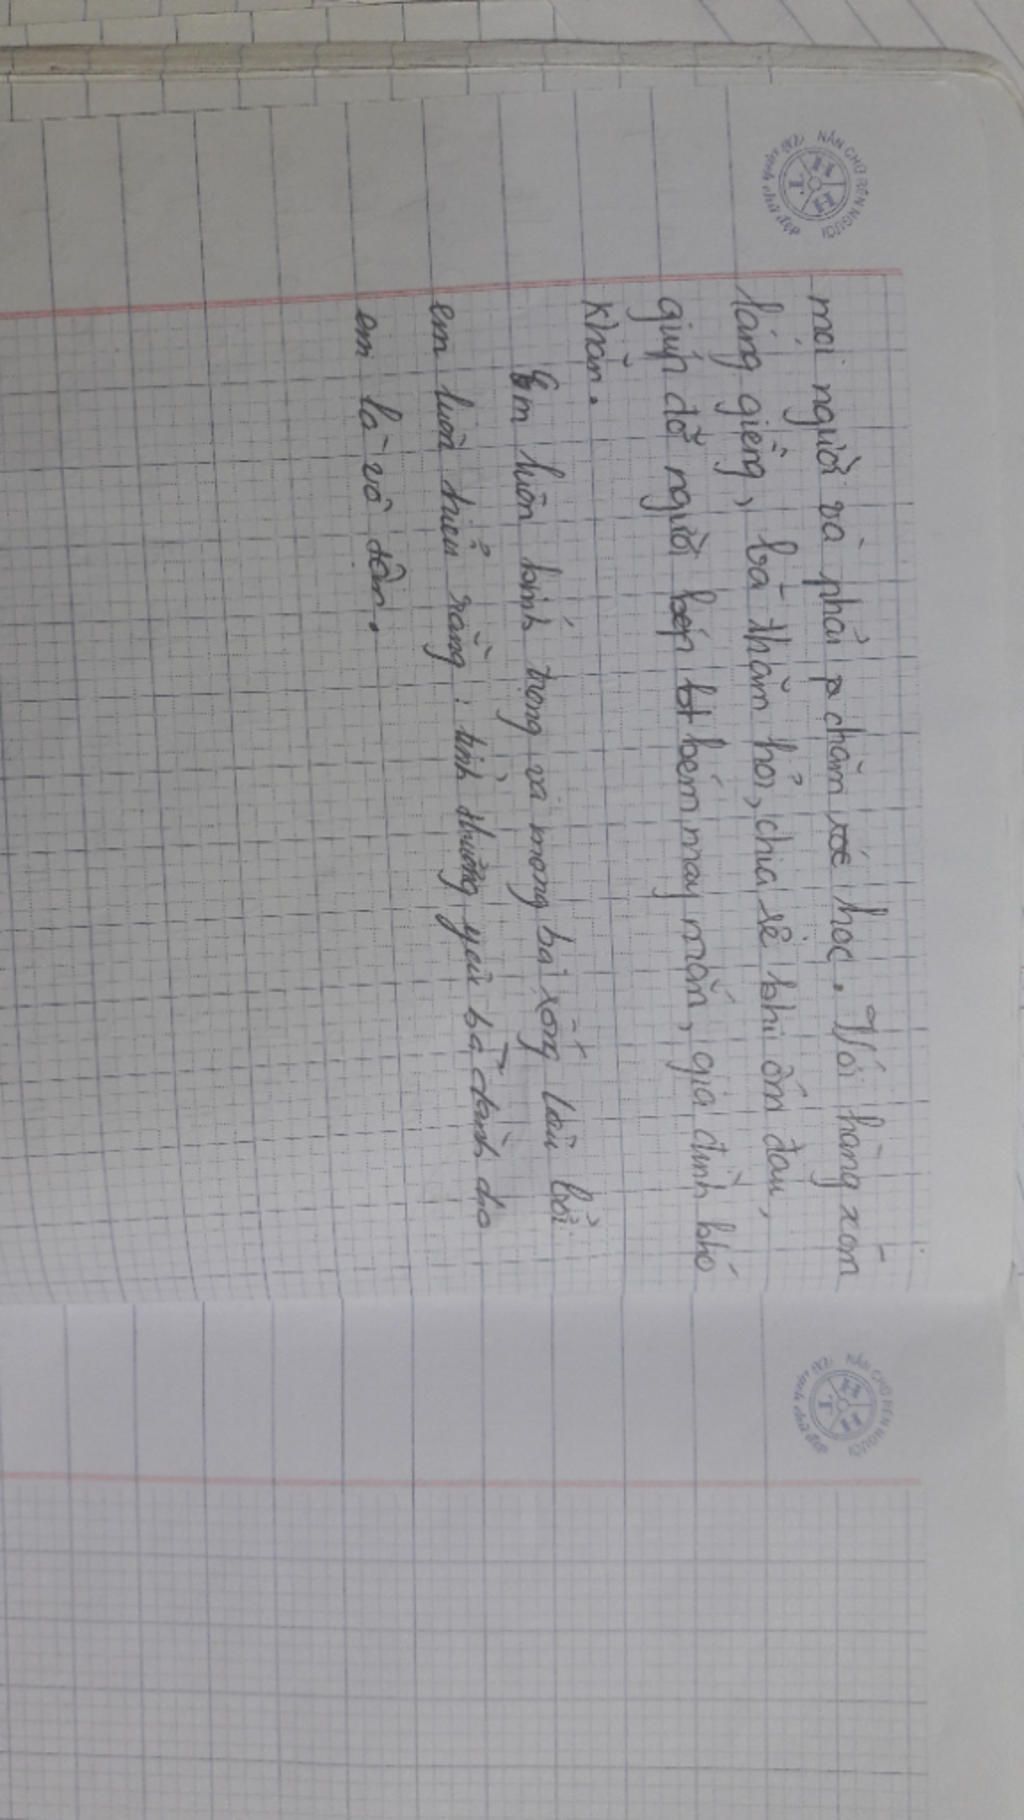 mọi người và phải chăm học. Với hàng xóm
láng giềng, bà thăm hỏi, chia sẻ khi ốm đau,
giúp đỡ người kém may mắn, gia đình khó
khăn.
Em luôn kính trọng và mong bà sống lâu bởi
em luôn hiểu rằng: tình thương yêu bà dành cho
em là vô tận.
NÂN CHỮ RÈN NGƯỜI
luyện chữ đẹp
NÂN CHỮ RÈN NGƯỜI